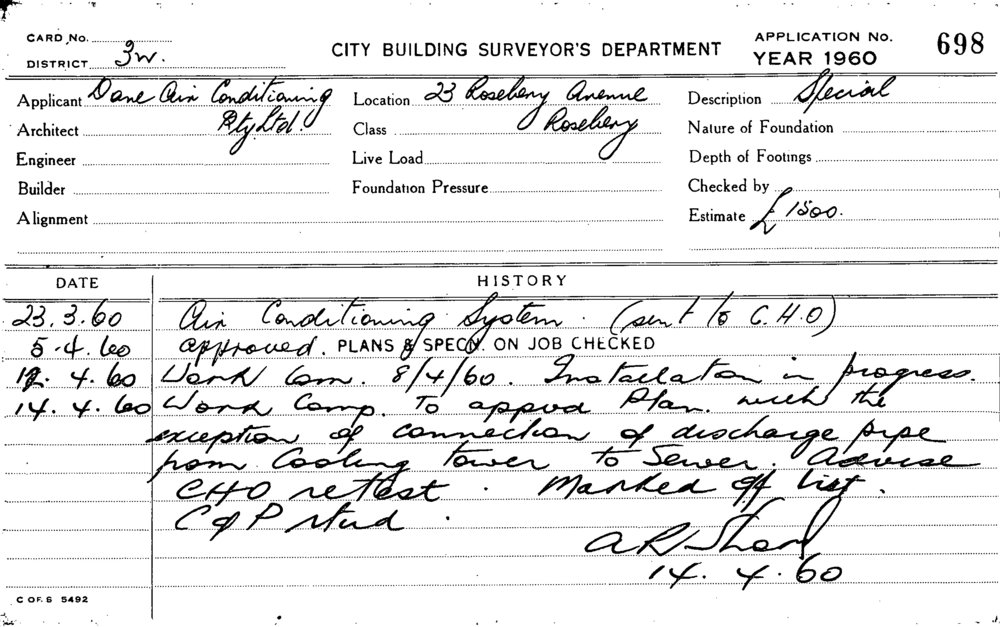 CARD No.
DISTRICT 3W.
CITY BUILDING SURVEYOR'S DEPARTMENT
APPLICATION No. 698
YEAR 1960
Applicant Dane Air Conditioning
Pty Ltd.
Architect
Engineer
Builder
Alignment
Location 23 Rosebery Avenue
Class Rosebery
Live Load
Foundation Pressure
Description Special
Nature of Foundation
Depth of Footings
Checked by
Estimate £1500.
DATE HISTORY
23.3.60 Air Conditioning System. (sent to C.H.O)
5.4.60 approved. PLANS & SPECN. ON JOB CHECKED
12.4.60 Work Com. 8/4/60. Installation in progress.
14.4.60 Work Comp. To appvd Plan. with the
exception of connection of discharge pipe
from Cooling Tower to Sewer. Advise
CHO re test. Marked off list.
C of P
14.4.60
C OF S 5492